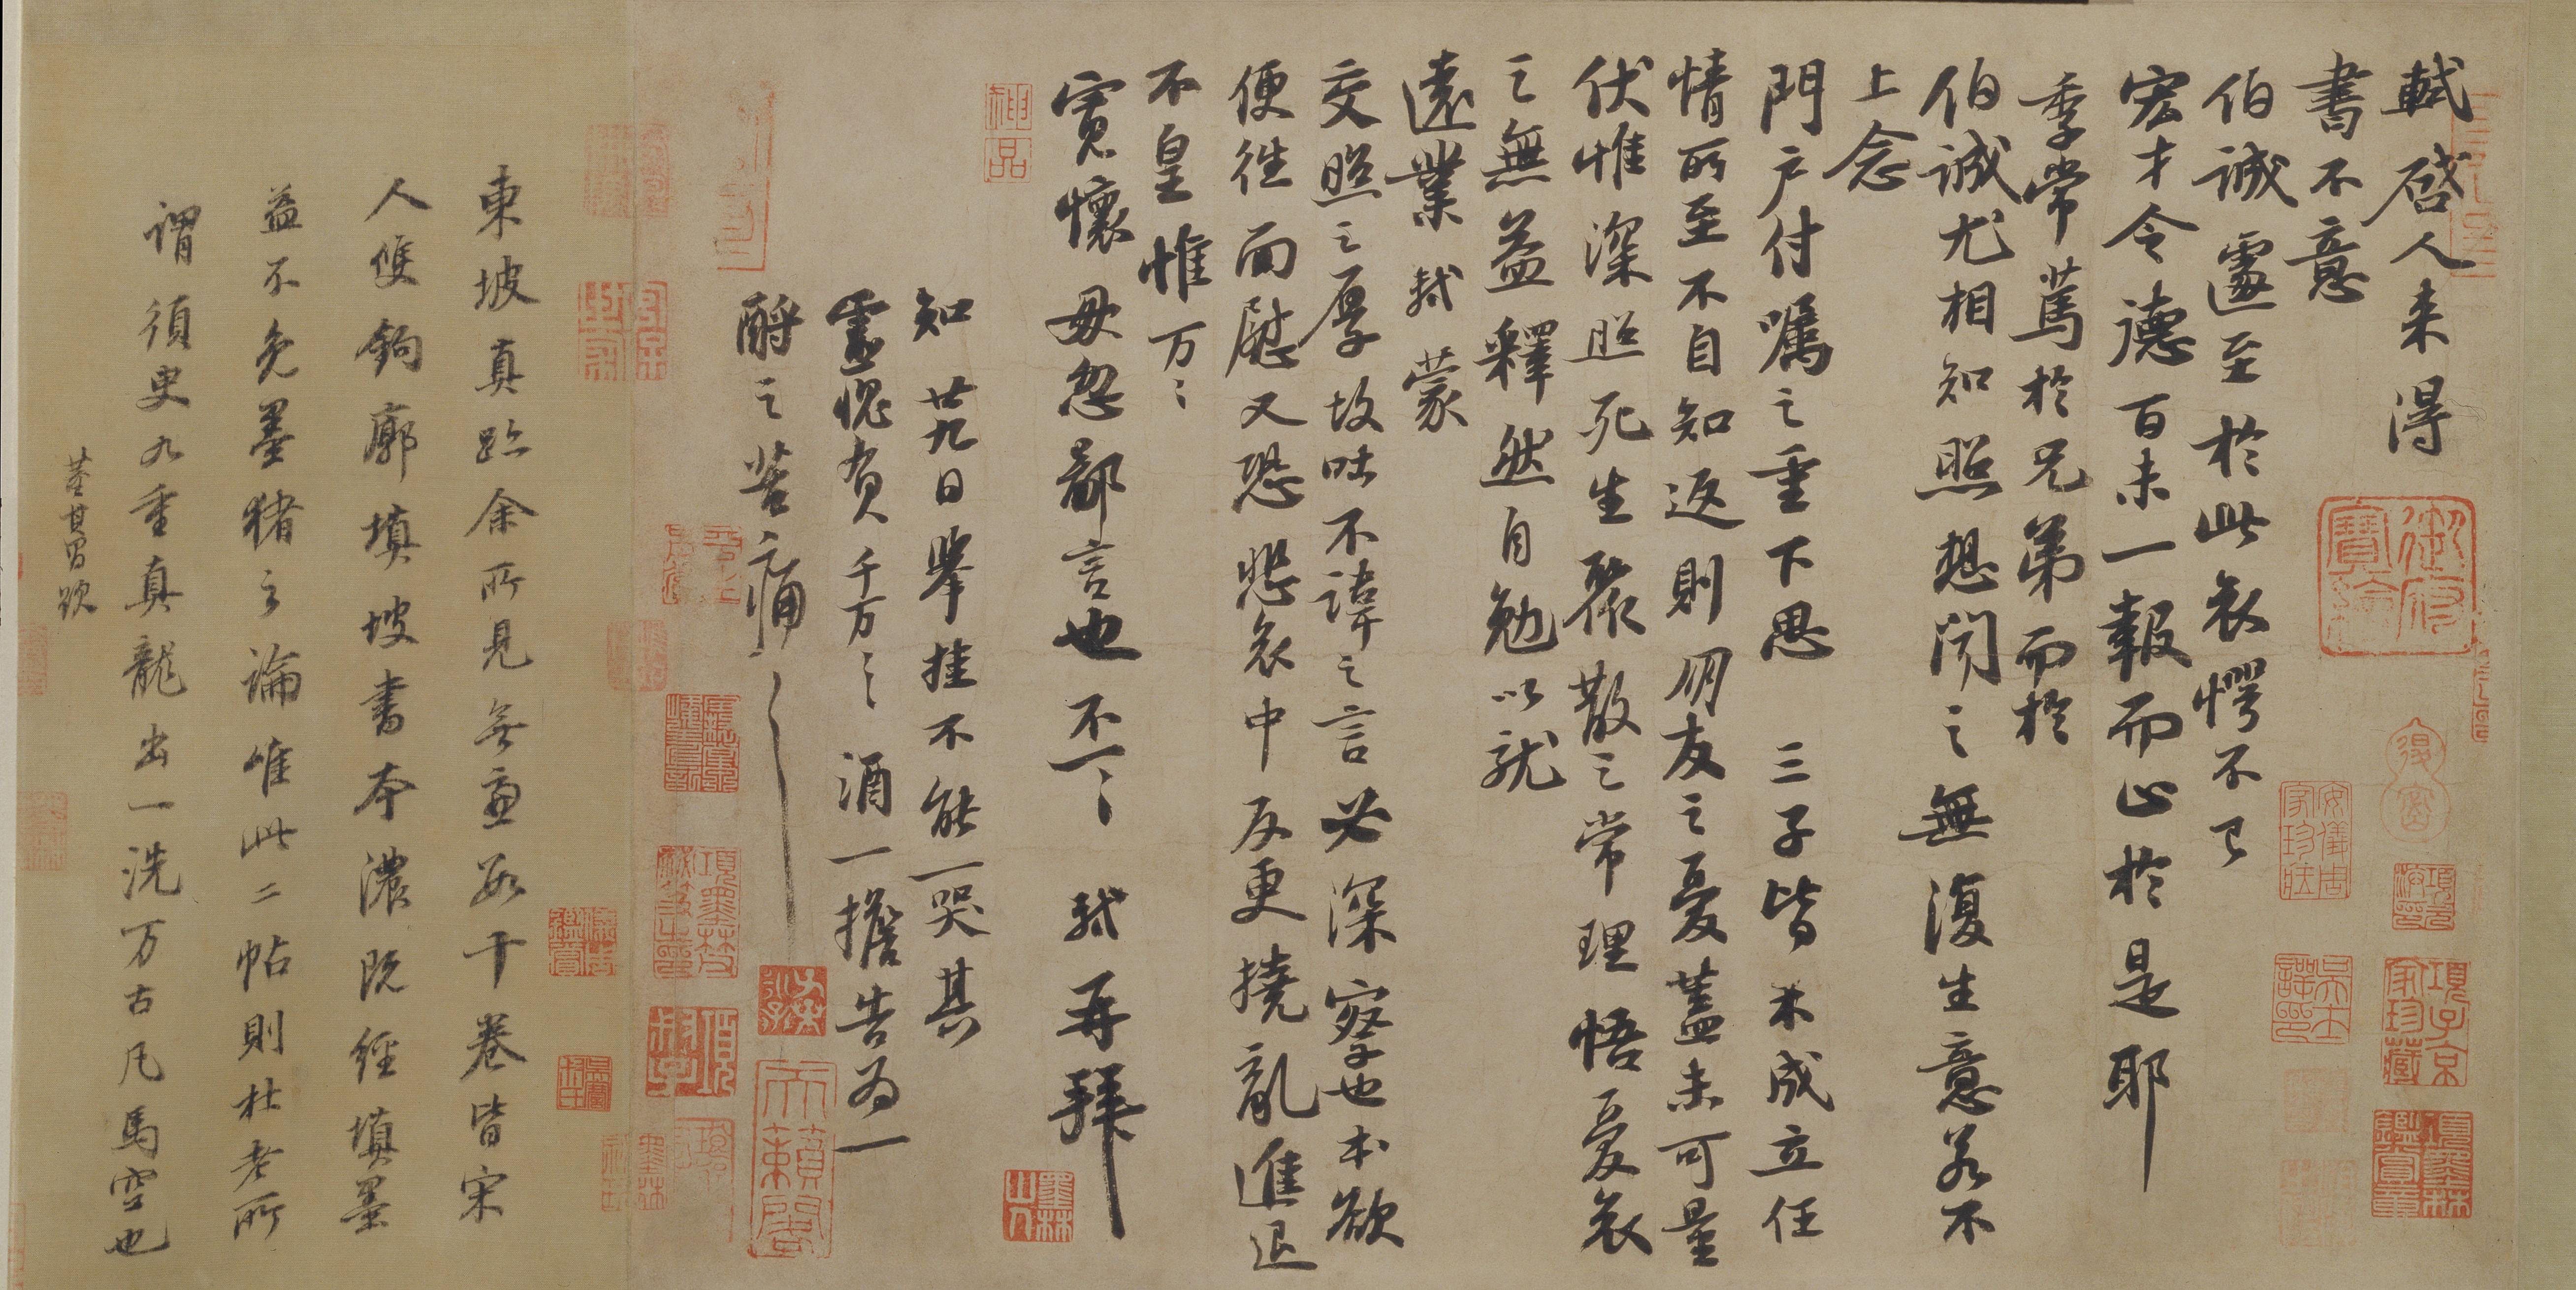 軾啓人來得
書不意
伯誠遽至於此哀愕不已
宏才令德百未一報而止於是耶
季常篤於兄弟而於
伯誠尤相知照想聞之無復生意若不
上念
門户付囑之重下思三子皆未成立任
情所至不自知返則朋友之憂蓋未可量
伏惟深照死生聚散之常理悟憂哀
之無益釋然自勉以就
遠業軾蒙
交照之厚故吐不諱之言必深察也本欲
便往面慰又恐悲哀中反更撓亂進退
不皇惟万万
寬懷毋忽鄙言也不一一軾再拜
知廿九日舉挂不能一哭其
靈愧負千万千万酒一擔告爲一
酹之苦痛苦痛
神品
東坡真跡余所見無慮數十卷皆宋
人雙鉤廓填坡書本濃既經填墨
益不免墨猪之論唯此二帖則杜老所
謂須臾九重真龍出一洗万古凡馬空也
董其昌跋
御府寶繪
安儀周家珍藏
項子京家珍藏
項墨林鑑賞章
天籟閣
墨林山人